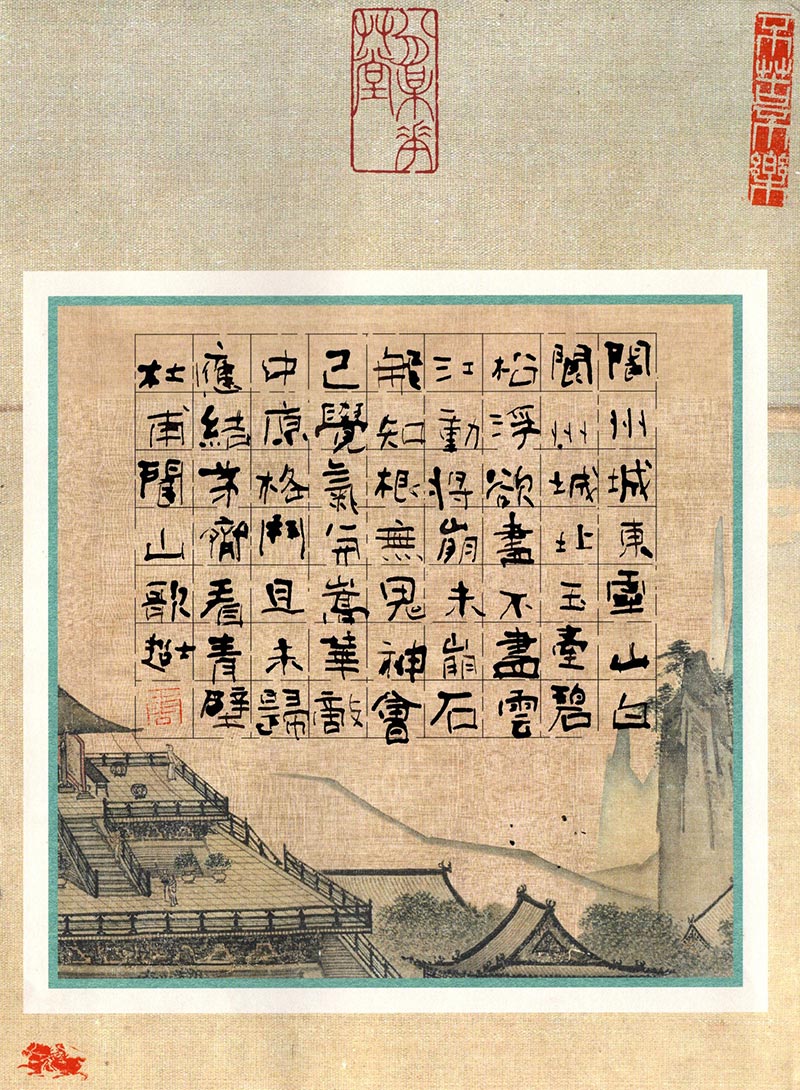 閬州城東靈山白
閬州城北玉臺碧
松浮欲盡不盡雲
江動將崩未崩石
那知根無鬼神會
已覺氣与嵩華敵
中原格鬥且未歸
應結茅齋看青壁
杜甫閬山歌 超士